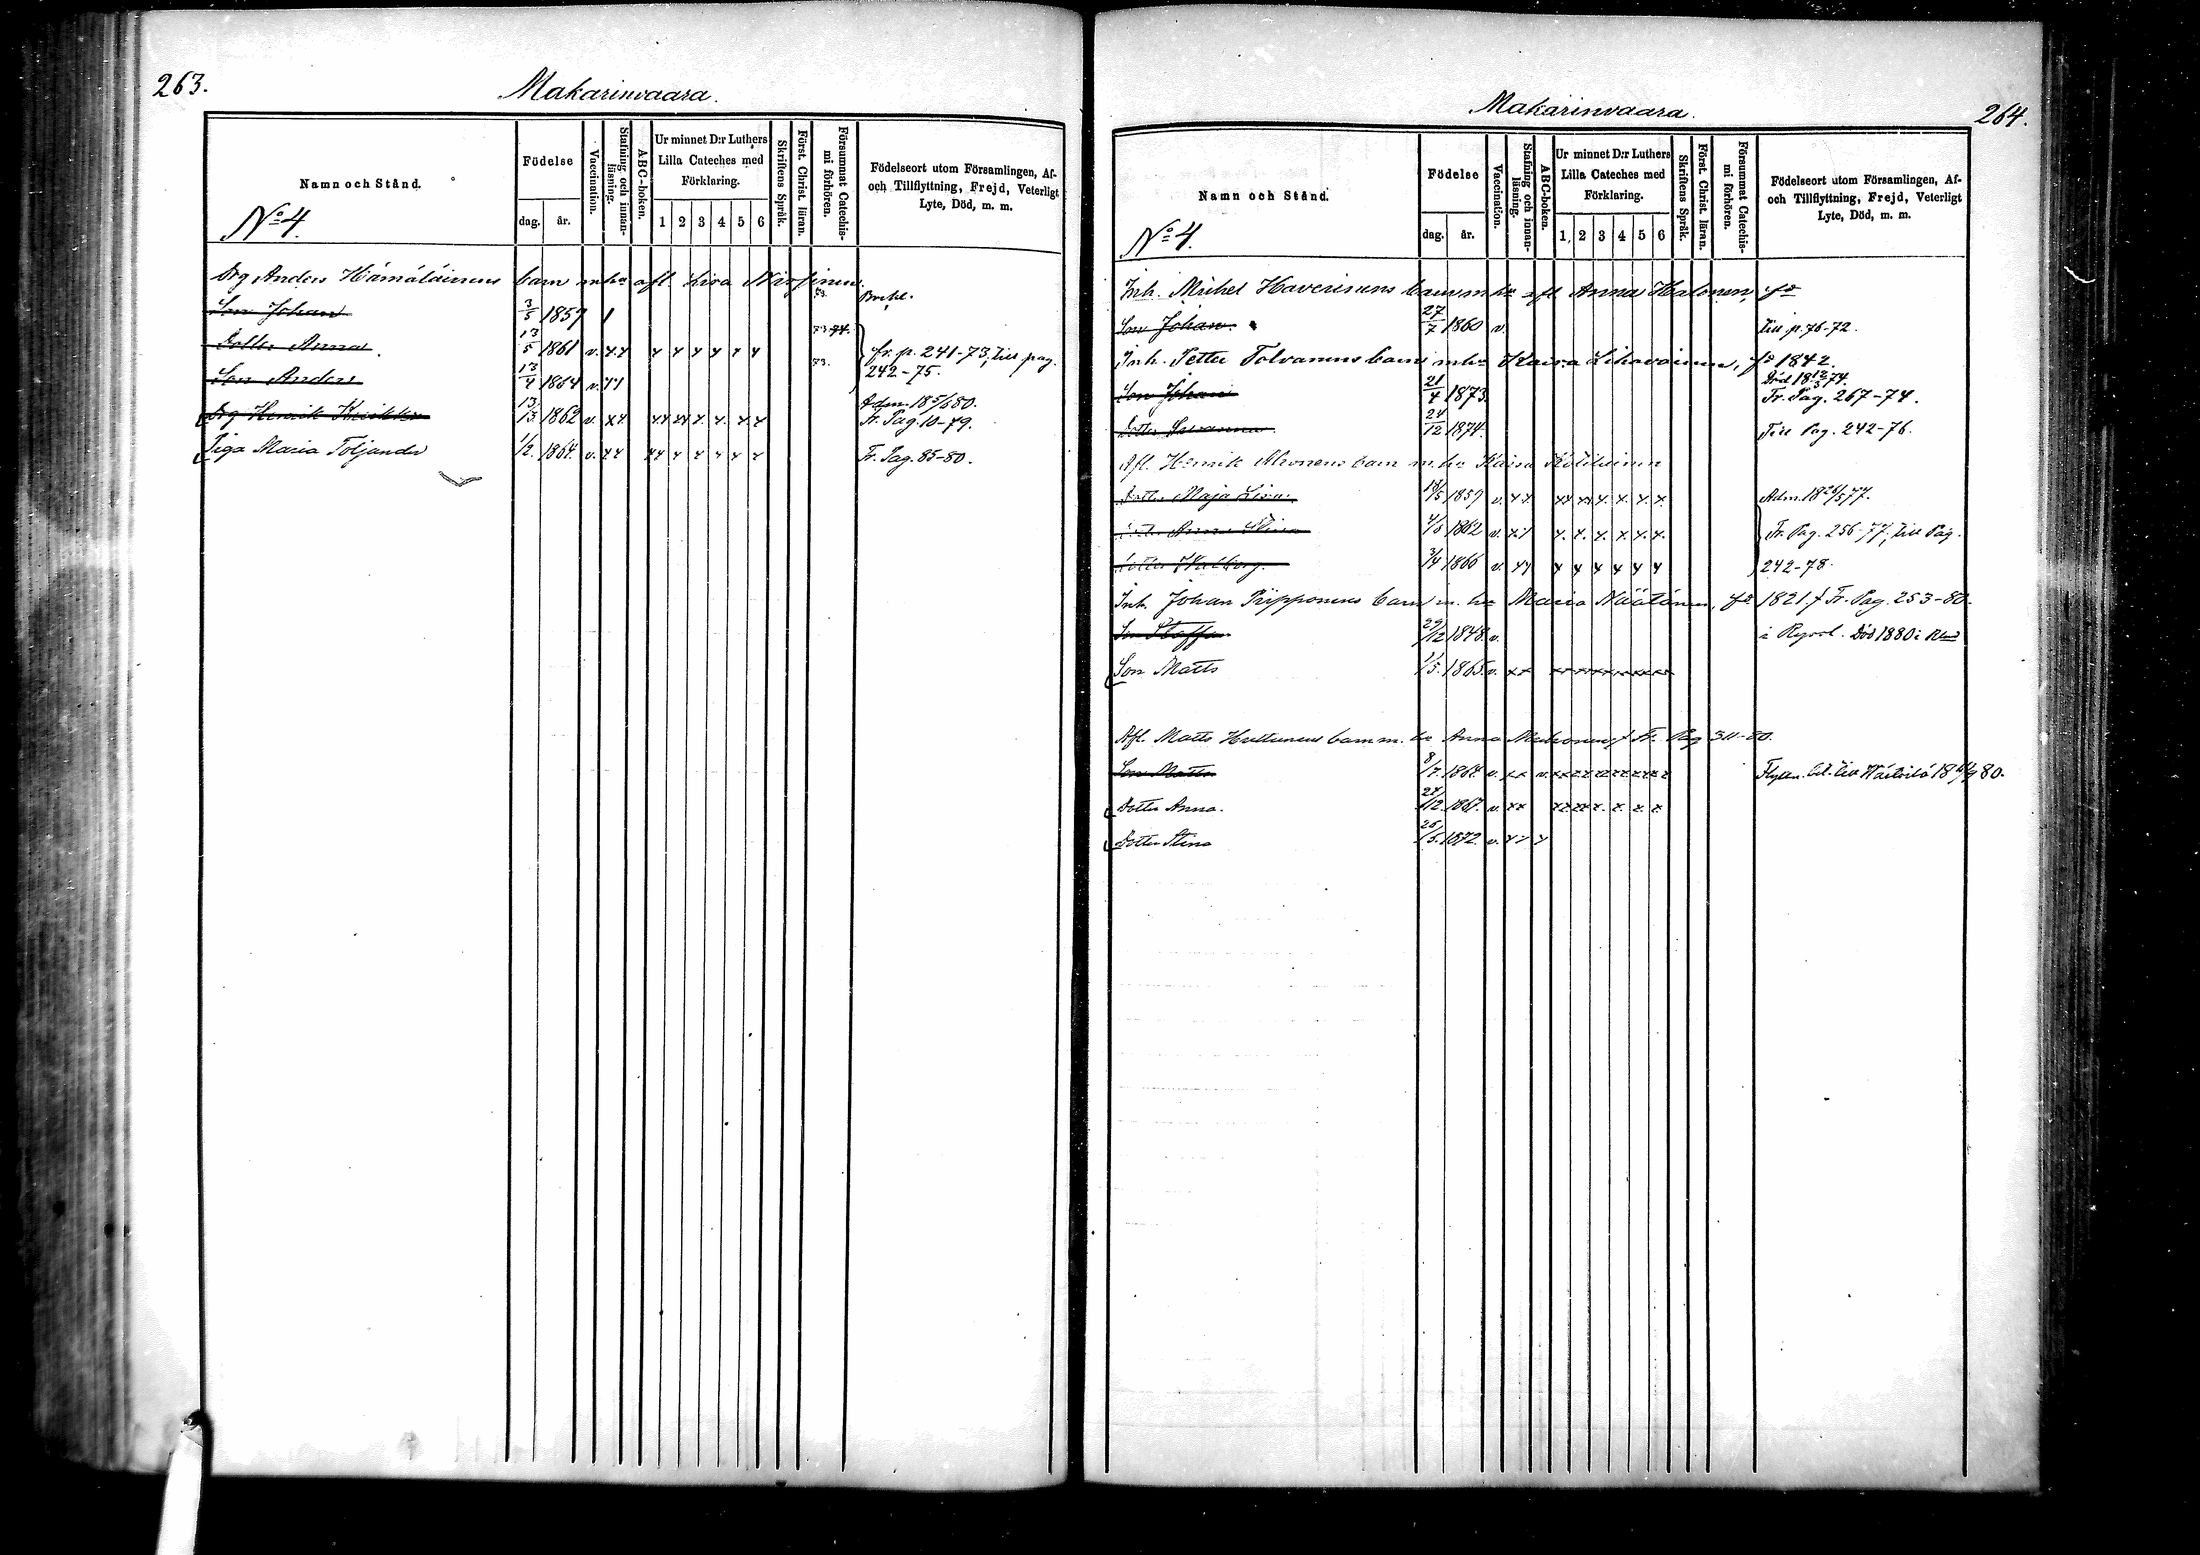 263.
Makarinvaara.
Namn och Stånd.
No 4.
Födelse
dag. år.
Vaccination.
Stafning och innanläsning.
ABC-boken.
Ur minnet D:r Luthers Lilla Cateches med Förklaring.
1 2 3 4 5 6
Skriftens Språk.
Först. Christ. läran.
Försummat Catechismi förhören.
Födelseort utom Församlingen, Af- och Tillflyttning, Frejd, Veterligt Lyte, Död, m. m.
Drg Anders Hämäläinens barn m hu afl Lisa
Son Johan 3/5 1857 1 73.
Dotter Anna 13/5 1861 v. x x x x x x x x 73 74. fr. p. 241-73, till pag.
Son Anders 13/4 1864 v. x x 73. 242-75.
Adm. 18 5/6 80.
Drg Henrik 1862 v. x x x x x x x. x. x x Fr. Pag. 10-79.
Piga Maria Toljander 1/2. 1864. v. x x x x x x x x x Fr. Pag. 85-80.
Makarinvaara.
264.
Namn och Stånd.
No 4.
Födelse
dag. år.
Vaccination.
Stafning och innanläsning.
ABC-boken.
Ur minnet D:r Luthers Lilla Cateches med Förklaring.
1, 2 3 4 5 6
Skriftens Språk.
Först. Christ. läran.
Försummat Catechismi förhören.
Födelseort utom Församlingen, Af- och Tillflyttning, Frejd, Veterligt Lyte, Död, m. m.
Inh. Michel Haverinens barn m hu afl Anna Halonen, fo
Son Johan. 27/7 1860 v. till p. 76-72.
Inh. Petter Tolvanens barn m hu Kaisa fo 1842.
Död 18 12/3 74.
Son Johan 21/4 1873. Fr. Pag. 267-74.
Dotter Susanna 24/12 1874. Till Pag. 242-76.
Afl. Henrik barn m. hu Kaisa
Dotter Maja Lisa 1859 v. x x x x x x x. x. x. x. x. Adm. 18 26/5 77.
Anna Stina 1862 v. x x x. x. x. x. x. x. Fr. Pag. 256-77, till Pag.
Dotter Walborg. 3/4 1866 v. x x x x x x x x 242-78.
Inh. Johan Pipponens barn m. hu Maria Näätänen, fo 1821, f Fr. Pag. 253-80.
Son Staffan 29/12 1848. v. i Ryssl. Död 1880 i
Son Matts 1/5. 1865. v. x x x x x x x x x x x x
Afl. Matts Huttunens barn m. hu Anna f Fr. Pag 311-80.
Son Matts 8/7. 1864. v. x x v. x x x x x x x x x x x Flyttn. bet. till 80.
Dotter Anna. 24/12. 1867. v. x x x x x x x. x. x. x.
Dotter Stina 26/5. 1872. v. x x x